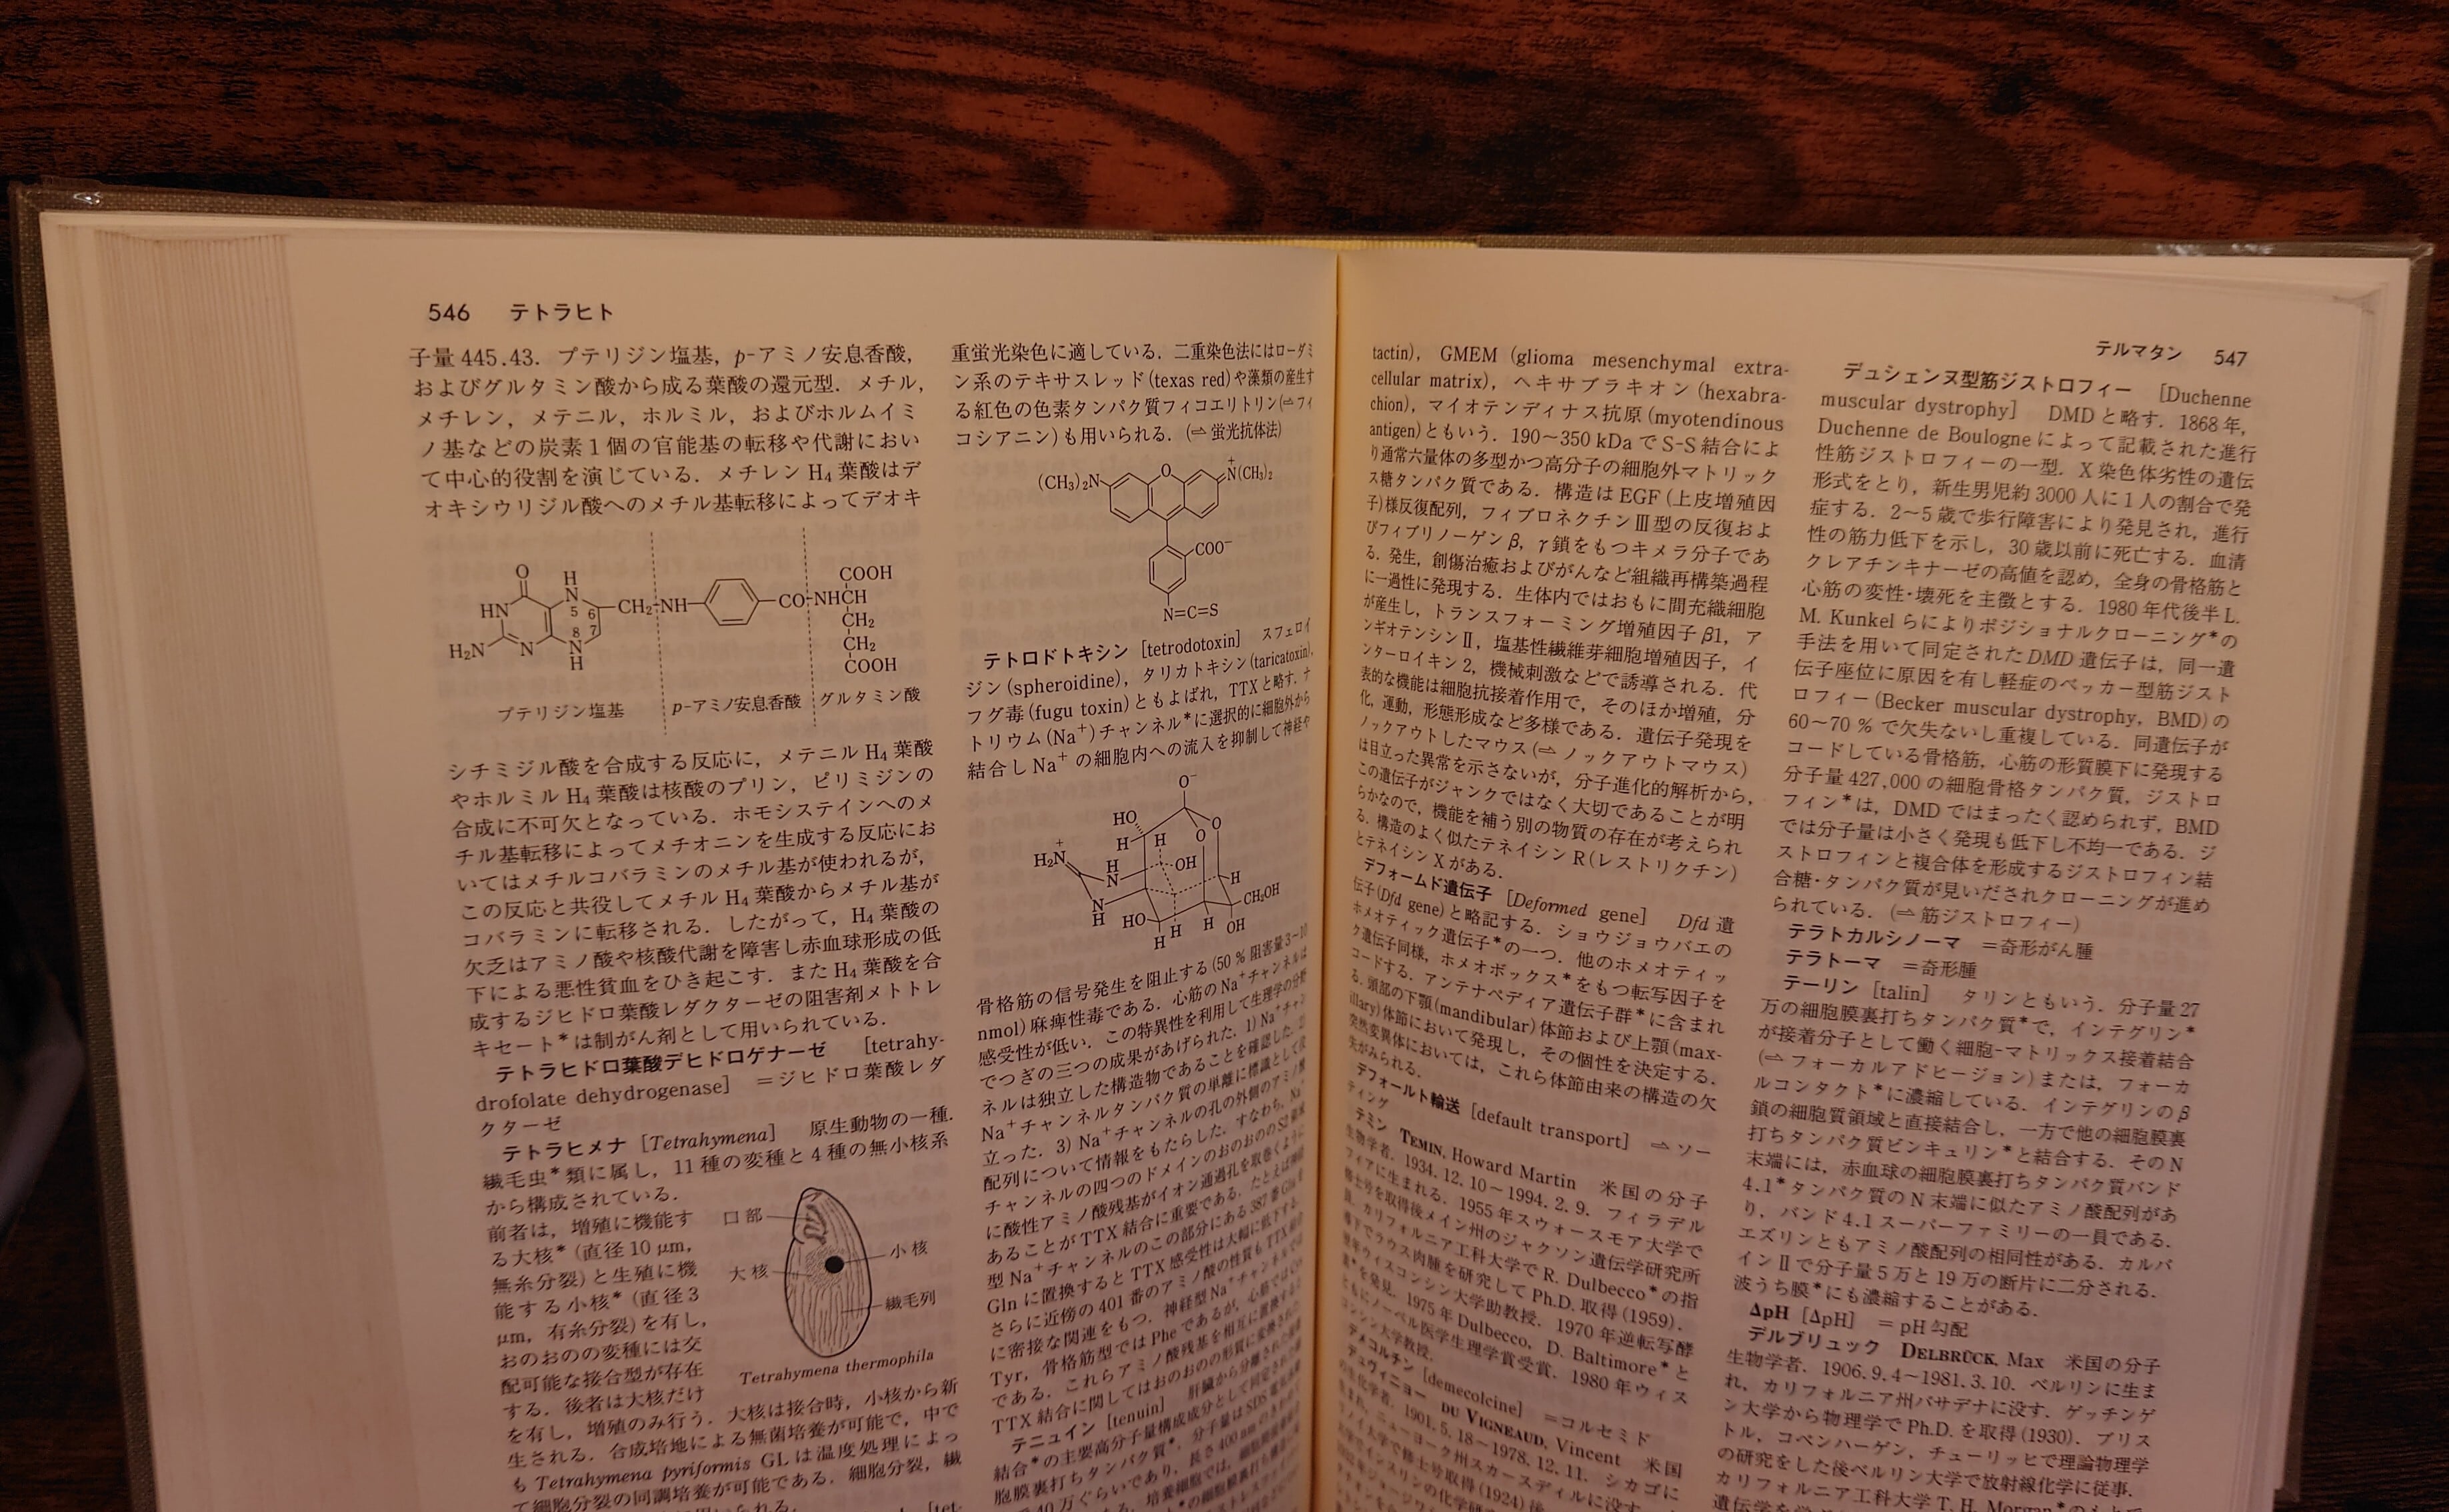 546 テトラヒト
子量 445.43. プテリジン塩基, p-アミノ安息香酸,
およびグルタミン酸から成る葉酸の還元型. メチル,
メチレン, メテニル, ホルミル, およびホルムイミ
ノ基などの炭素1個の官能基の転移や代謝におい
て中心的役割を演じている. メチレン H₄ 葉酸はデ
オキシウリジル酸へのメチル基転移によってデオキ
O
H
N
HN
5
6
7
8
N
H
H₂N
N
CH₂-NH
CO-NHCH
COOH
CH₂
CH₂
COOH
プテリジン塩基
p-アミノ安息香酸
グルタミン酸
シチミジル酸を合成する反応に, メテニル H₄ 葉酸
やホルミル H₄ 葉酸は核酸のプリン, ピリミジンの
合成に不可欠となっている. ホモシステインへのメ
チル基転移によってメチオニンを生成する反応にお
いてはメチルコバラミンのメチル基が使われるが,
この反応と共役してメチル H₄ 葉酸からメチル基が
コバラミンに転移される. したがって, H₄ 葉酸の
欠乏はアミノ酸や核酸代謝を障害し赤血球形成の低
下による悪性貧血をひき起こす. また H₄ 葉酸を合
成するジヒドロ葉酸レダクターゼの阻害剤メトトレ
キセート*は制がん剤として用いられている.
テトラヒドロ葉酸デヒドロゲナーゼ [tetrahy-
drofolate dehydrogenase] =ジヒドロ葉酸レダ
クターゼ
テトラヒメナ [Tetrahymena] 原生動物の一種.
繊毛虫*類に属し, 11種の変種と4種の無小核系
から構成されている.
前者は, 増殖に機能す
る大核* (直径 10 μm,
無糸分裂) と生殖に機
能する小核* (直径 3
μm, 有糸分裂) を有し,
おのおのの変種には交
配可能な接合型が存在
する. 後者は大核だけ
口部
小核
大核
繊毛列
Tetrahymena thermophila
を有し, 増殖のみ行う. 大核は接合時, 小核から新
生される. 合成培地による無菌培養が可能で, 中で
も Tetrahymena pyriformis GL は温度処理によっ
て細胞分裂の同調培養が可能である. 細胞分裂, 繊
重蛍光染色に適している. 二重染色法にはローダミ
ン系のテキサスレッド (texas red) や藻類の産生す
る紅色の色素タンパク質フィコエリトリン(⇌フィ
コシアニン)も用いられる. (⇌ 蛍光抗体法)
(CH₃)₂N
O
N⁺(CH₃)₂
COO⁻
N=C=S
テトロドトキシン [tetrodotoxin] スフェロイ
ジン (spheroidine), タリカトキシン (taricatoxin),
フグ毒 (fugu toxin) ともよばれ, TTX と略す. ナ
トリウム (Na⁺) チャンネル*に選択的に細胞外から
結合し Na⁺ の細胞内への流入を抑制して神経や
O⁻
HO
O
O
H
H
H₂N⁺
H
N
OH
H
N
H
HO
CH₂OH
H
H
H
OH
骨格筋の信号発生を阻止する (50 % 阻害量 3~10
nmol) 麻痺性毒である. 心筋の Na⁺ チャンネルは
感受性が低い. この特異性を利用して生理学の分野
でつぎの三つの成果があげられた. 1) Na⁺ チャン
ネルは独立した構造物であることを確認した.
Na⁺ チャンネルタンパク質の単離に標識として役
立った. 3) Na⁺ チャンネルの孔の外側のアミノ酸
配列について情報をもたらした. すなわち, Na⁺
チャンネルの四つのドメインのおのおのの
に酸性アミノ酸残基がイオン通過孔を取巻くように
あることが TTX 結合に重要である. たとえば
型 Na⁺ チャンネルのこの部分にある 387 番
Gln に置換すると TTX 感受性は大幅に低下する.
さらに近傍の 401 番のアミノ酸の性質も TTX
に密接な関連をもつ. 神経型 Na⁺ チャンネルでは
Tyr, 骨格筋型では Phe であるが, 心筋では
である. これらアミノ酸残基を相互に置換すると
TTX 結合に関してはおのおのの形質に変換された.
テニュイン [tenuin] 肝臓から分離された
結合*の主要高分子量構成成分として同定された
胞膜裏打ちタンパク質*. 分子量は SDS
40万ぐらいであり, 長さ 400 nm
テルマタン 547
tactin), GMEM (glioma mesenchymal extra-
cellular matrix), ヘキサブラキオン (hexabra-
chion), マイオテンディナス抗原 (myotendinous
antigen) ともいう. 190~350 kDa で S-S 結合によ
り通常六量体の多型かつ高分子の細胞外マトリック
ス糖タンパク質である. 構造は EGF (上皮増殖因
子)様反復配列, フィブロネクチンⅢ型の反復およ
びフィブリノーゲン β, γ 鎖をもつキメラ分子であ
る. 発生, 創傷治癒およびがんなど組織再構築過程
に一過性に発現する. 生体内ではおもに間充織細胞
が産生し, トランスフォーミング増殖因子 β1, ア
ンギオテンシンⅡ, 塩基性繊維芽細胞増殖因子, イ
ンターロイキン 2, 機械刺激などで誘導される. 代
表的な機能は細胞抗接着作用で, そのほか増殖, 分
化, 運動, 形態形成など多様である. 遺伝子発現を
ノックアウトしたマウス (⇌ ノックアウトマウス)
は目立った異常を示さないが, 分子進化的解析から,
この遺伝子がジャンクではなく大切であることが明
らかなので, 機能を補う別の物質の存在が考えられ
る. 構造のよく似たテネイシン R (レストリクチン)
とテネイシン X がある.
デフォームド遺伝子 [Deformed gene] Dfd 遺
伝子 (Dfd gene) と略記する. ショウジョウバエの
ホメオティック遺伝子*の一つ. 他のホメオティッ
ク遺伝子同様, ホメオボックス*をもつ転写因子を
コードする. アンテナペディア遺伝子群*に含まれ
る. 頭部の下顎 (mandibular) 体節および上顎 (max-
illary) 体節において発現し, その個性を決定する.
突然変異体においては, これら体節由来の構造の欠
失がみられる.
デフォールト輸送 [default transport] ⇌ ソー
ティング
テミン TEMIN, Howard Martin 米国の分子
生物学者. 1934. 12. 10~1994. 2. 9. フィラデル
フィアに生まれる. 1955 年スウォースモア大学で
修士号を取得後メイン州のジャクソン遺伝学研究所
員. カリフォルニア工科大学で R. Dulbecco*の指
導下でラウス肉腫を研究して Ph.D. 取得 (1959).
ウィスコンシン大学助教授. 1970 年逆転写酵
素*を発見. 1975 年 Dulbecco, D. Baltimore*と
ともにノーベル医学生理学賞受賞. 1980 年ウィス
コンシン大学教授.
デメコルチン [demecolcine] =コルセミド
デュヴィニョー DU VIGNEAUD, Vincent 米国
の生化学者. 1901. 5. 18~1978. 12. 11. シカゴに
生まれ, ニューヨーク州スカースデイルに没す.
イリノイ大学で修士号取得 (1924) 後
デュシェンヌ型筋ジストロフィー [Duchenne
muscular dystrophy] DMD と略す. 1868 年,
Duchenne de Boulogne によって記載された進行
性筋ジストロフィーの一型. X 染色体劣性の遺伝
形式をとり, 新生男児約 3000 人に 1 人の割合で発
症する. 2~5 歳で歩行障害により発見され, 進行
性の筋力低下を示し, 30 歳以前に死亡する. 血清
クレアチンキナーゼの高値を認め, 全身の骨格筋と
心筋の変性・壊死を主徴とする. 1980 年代後半 L.
M. Kunkel らによりポジショナルクローニング*の
手法を用いて同定された DMD 遺伝子は, 同一遺
伝子座位に原因を有し軽症のベッカー型筋ジスト
ロフィー (Becker muscular dystrophy, BMD) の
60~70 % で欠失ないし重複している. 同遺伝子が
コードしている骨格筋, 心筋の形質膜下に発現する
分子量 427,000 の細胞骨格タンパク質, ジストロ
フィン*は, DMD ではまったく認められず, BMD
では分子量は小さく発現も低下し不均一である. ジ
ストロフィンと複合体を形成するジストロフィン結
合糖・タンパク質が見いだされクローニングが進め
られている. (⇌ 筋ジストロフィー)
テラトカルシノーマ =奇形がん腫
テラトーマ =奇形腫
テーリン [talin] タリンともいう. 分子量 27
万の細胞膜裏打ちタンパク質*で, インテグリン*
が接着分子として働く細胞-マトリックス接着結合
(⇌ フォーカルアドヒージョン) または, フォーカ
ルコンタクト*に濃縮している. インテグリンの β
鎖の細胞質領域と直接結合し, 一方で他の細胞膜裏
打ちタンパク質ビンキュリン*と結合する. その N
末端には, 赤血球の細胞膜裏打ちタンパク質バンド
4.1*タンパク質の N 末端に似たアミノ酸配列があ
り, バンド 4.1 スーパーファミリーの一員である.
エズリンともアミノ酸配列の相同性がある. カルパ
インⅡで分子量 5 万と 19 万の断片に二分される.
波うち膜*にも濃縮することがある.
ΔpH [ΔpH] = pH 勾配
デルブリュック DELBRÜCK, Max 米国の分子
生物学者. 1906. 9. 4~1981. 3. 10. ベルリンに生ま
れ, カリフォルニア州パサデナに没す. ゲッチンゲ
ン大学から物理学で Ph.D. を取得 (1930). ブリス
トル, コペンハーゲン, チューリッヒで理論物理学
の研究をした後ベルリン大学で放射線化学に従事.
カリフォルニア工科大学 T. H. Morgan*のもとで